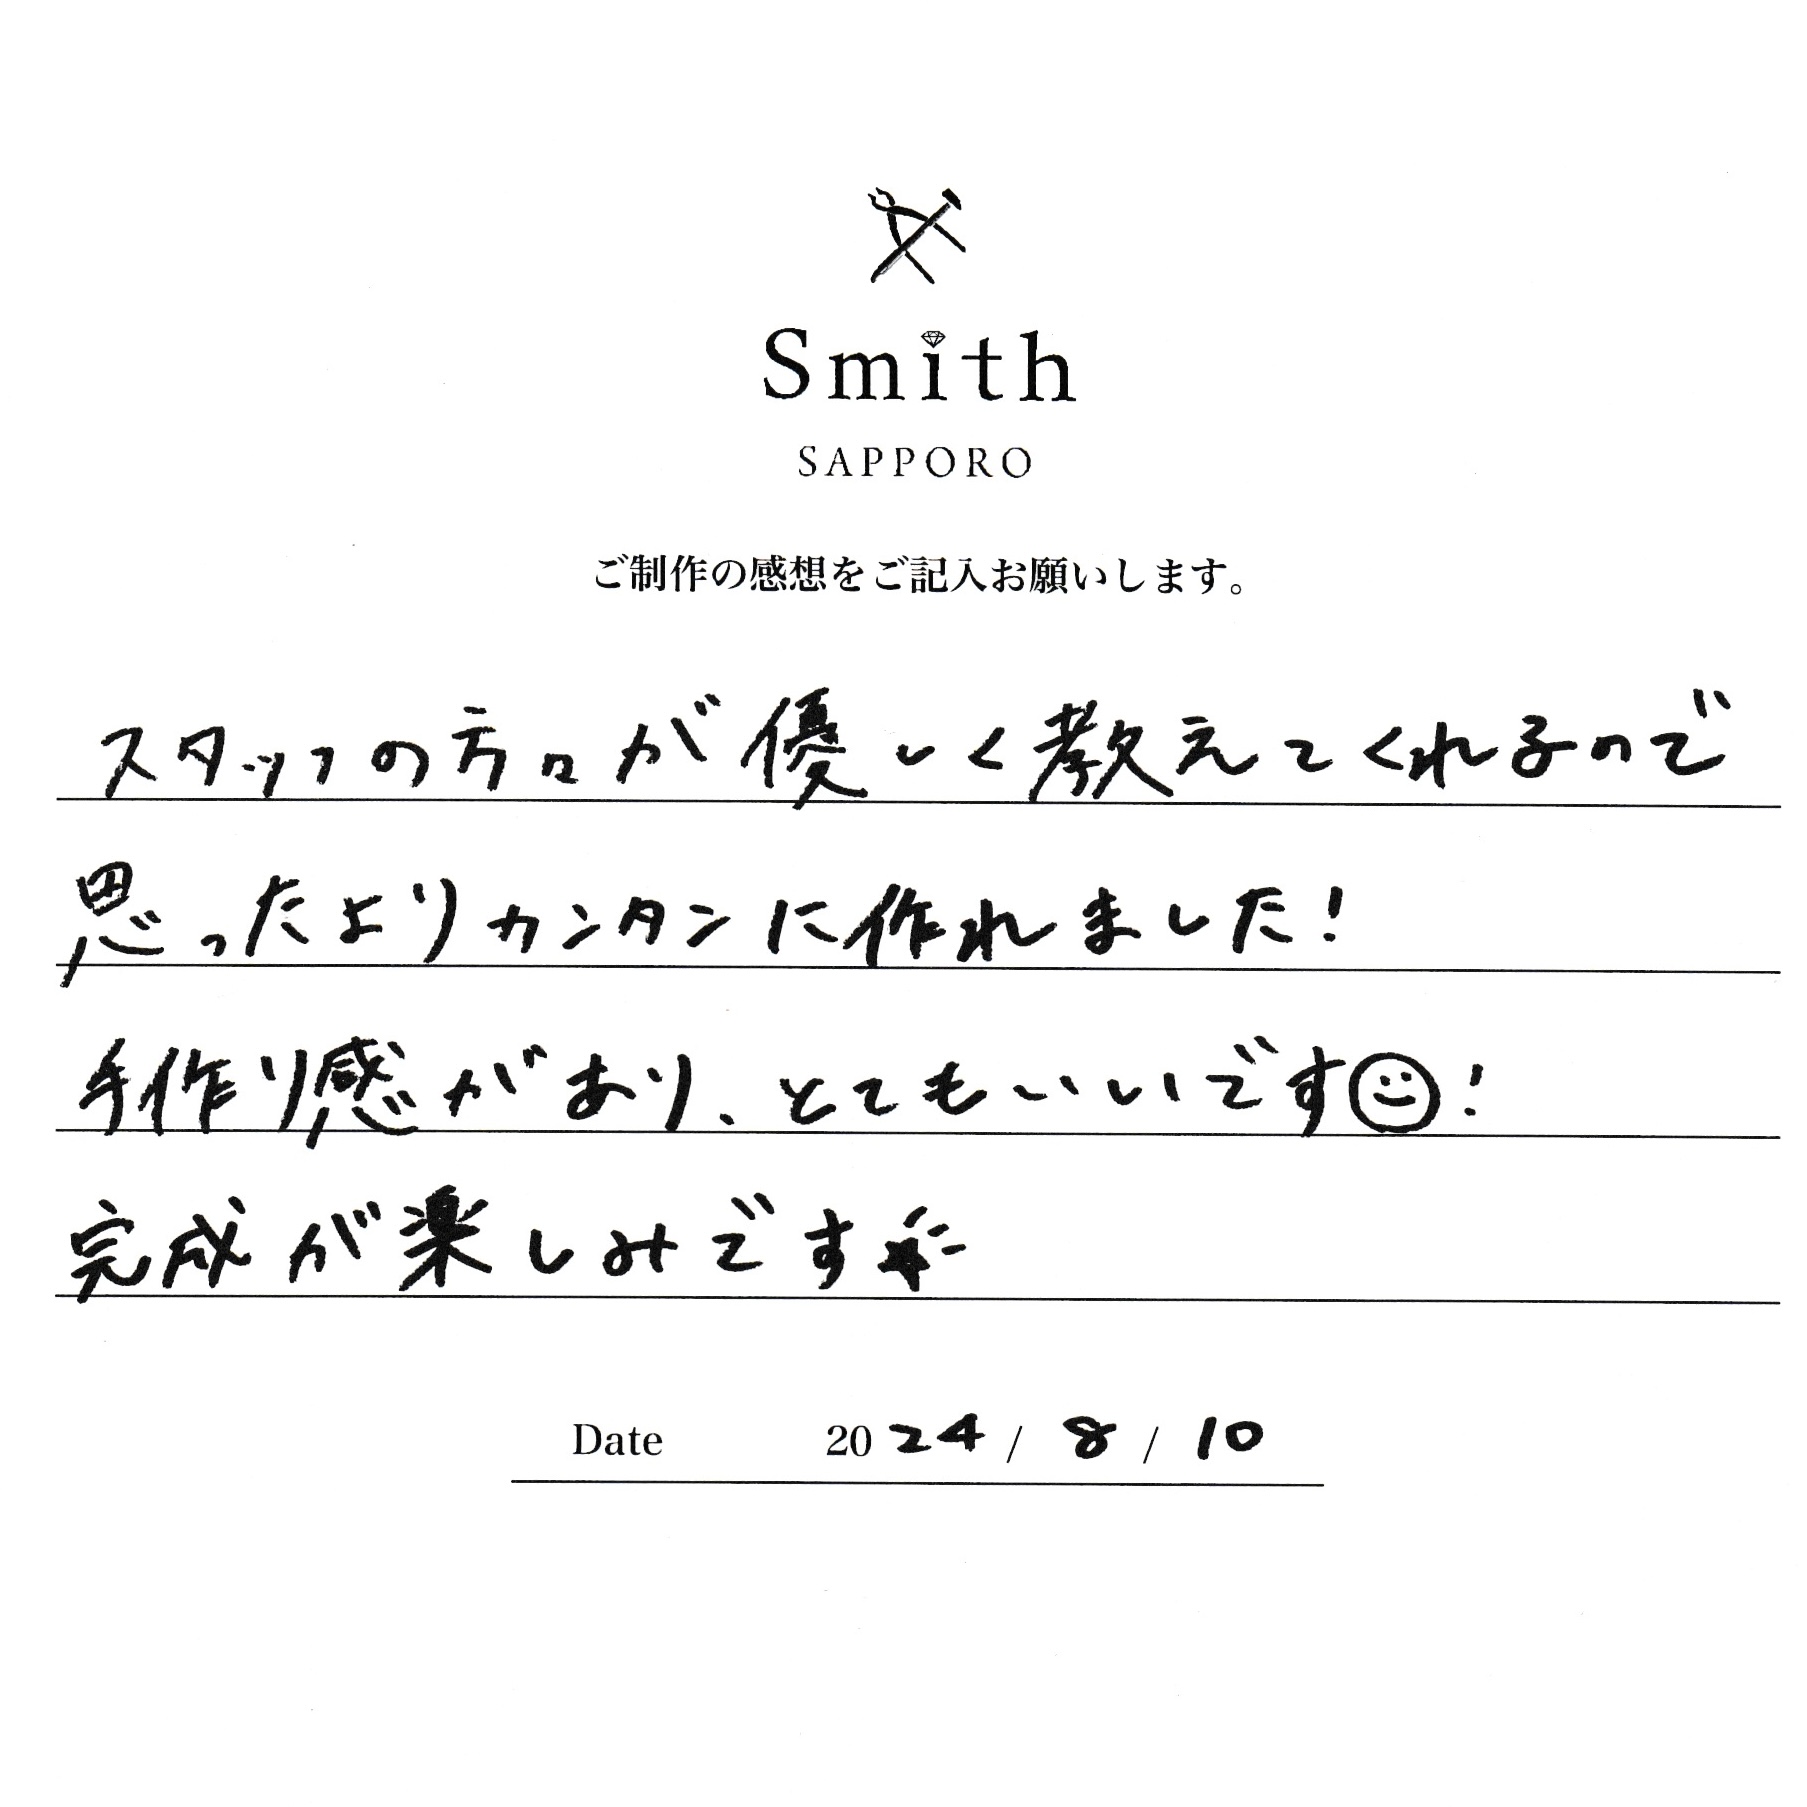 Smith
SAPPORO
ご制作の感想をご記入お願いします。
スタッフの方々が優しく教えてくれるので
思ったよりカンタンに作れました!
手作り感があり、とてもいいです☺!
完成が楽しみです★
Date 2024/8/10